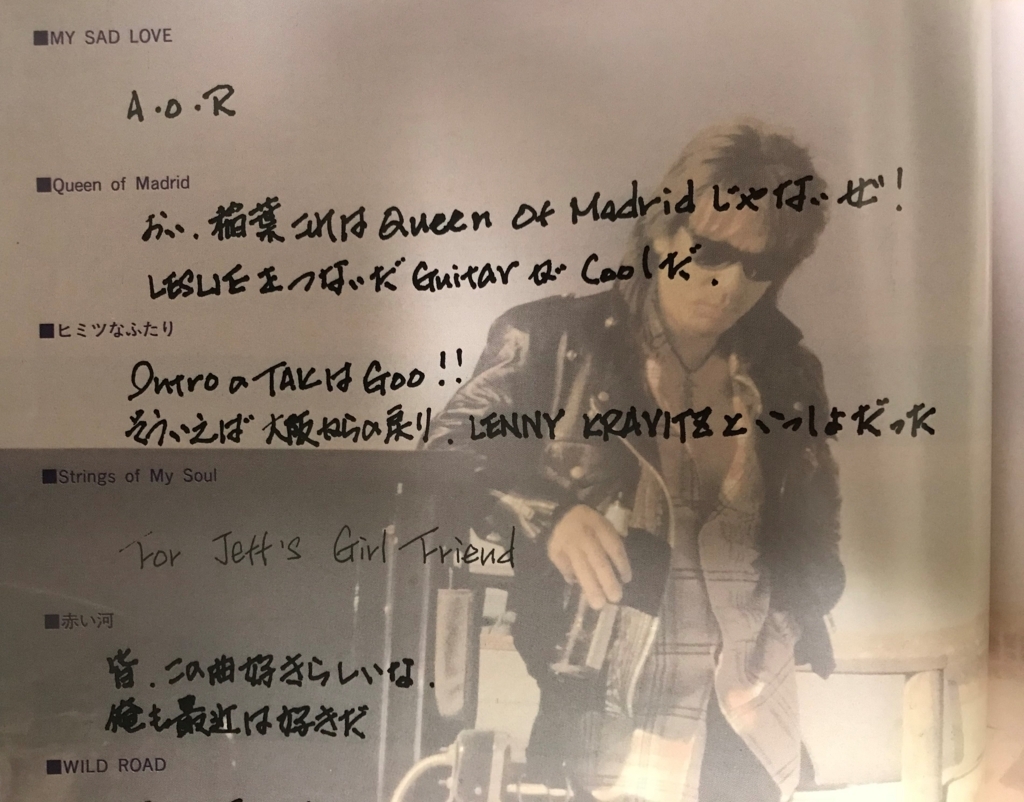 ■MY SAD LOVE
A・O・R
■Queen of Madrid
おい、稲葉これはQueen Of Madridじゃないぜ!
LESLIEをつないだGuitarがCoolだ.
■ヒミツなふたり
IntroのTAKはGoo!!
そういえば大阪からの戻り、LENNY KRAVITZといっしょだった
■Strings of My Soul
For Jeff's Girl Friend
■赤い河
皆、この曲好きらしいな.
俺も最近は好きだ
■WILD ROAD